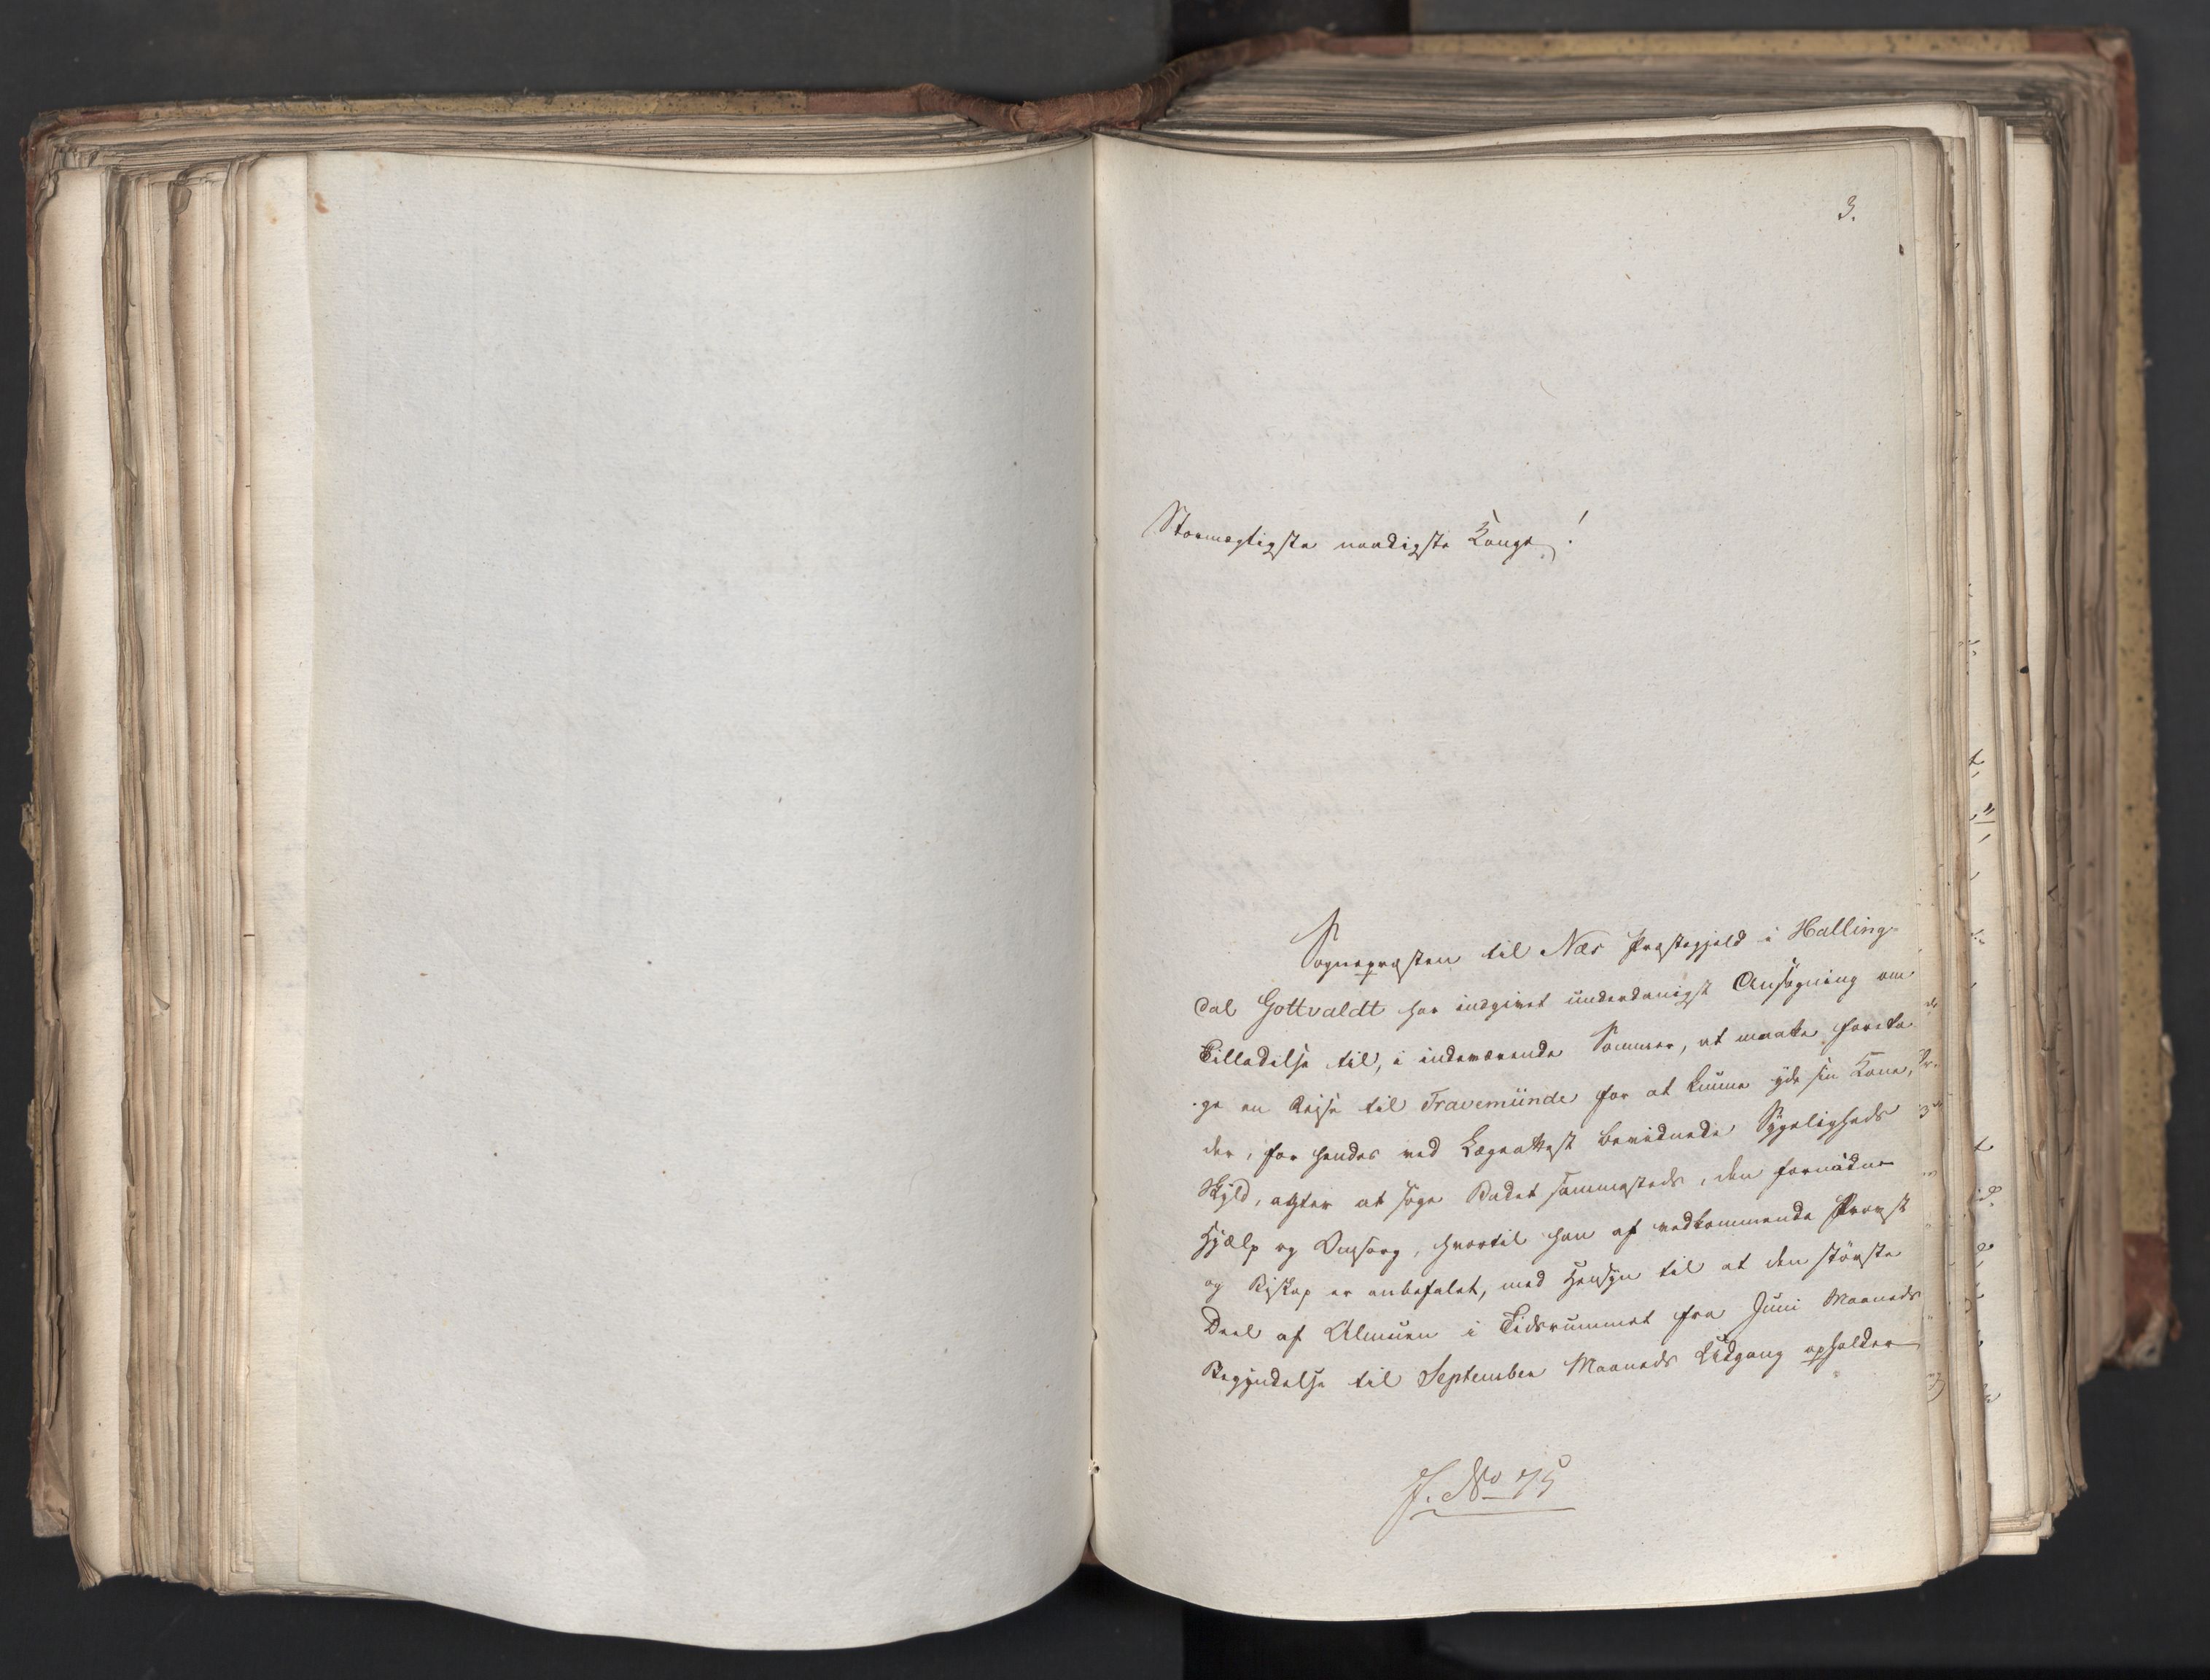 3.
Stormægtigste naadigste Konge!
Sognepræsten til Næs Præstegjeld i Halling-
dal Gottvaldt har indgivet underdanigst Ansøgning om
Tilladelse til, i indeværende Sommer, at maatte foreta-
ge en Reise til Travemünde for at kunne yde sin Kone,
der, for hendes ved Lægeattest bevidnede Sygeligheds
Skyld, agter at søge Badet sammesteds, den fornødne
Hjælp og Omsorg, hvortil han af vedkommende Provst
og Biskop er anbefalet, med Hensyn til at den største
Deel af Almuen i Tidsrummet fra Juni Maaneds
Begyndelse til September Maaneds Udgang opholder
J. No 75